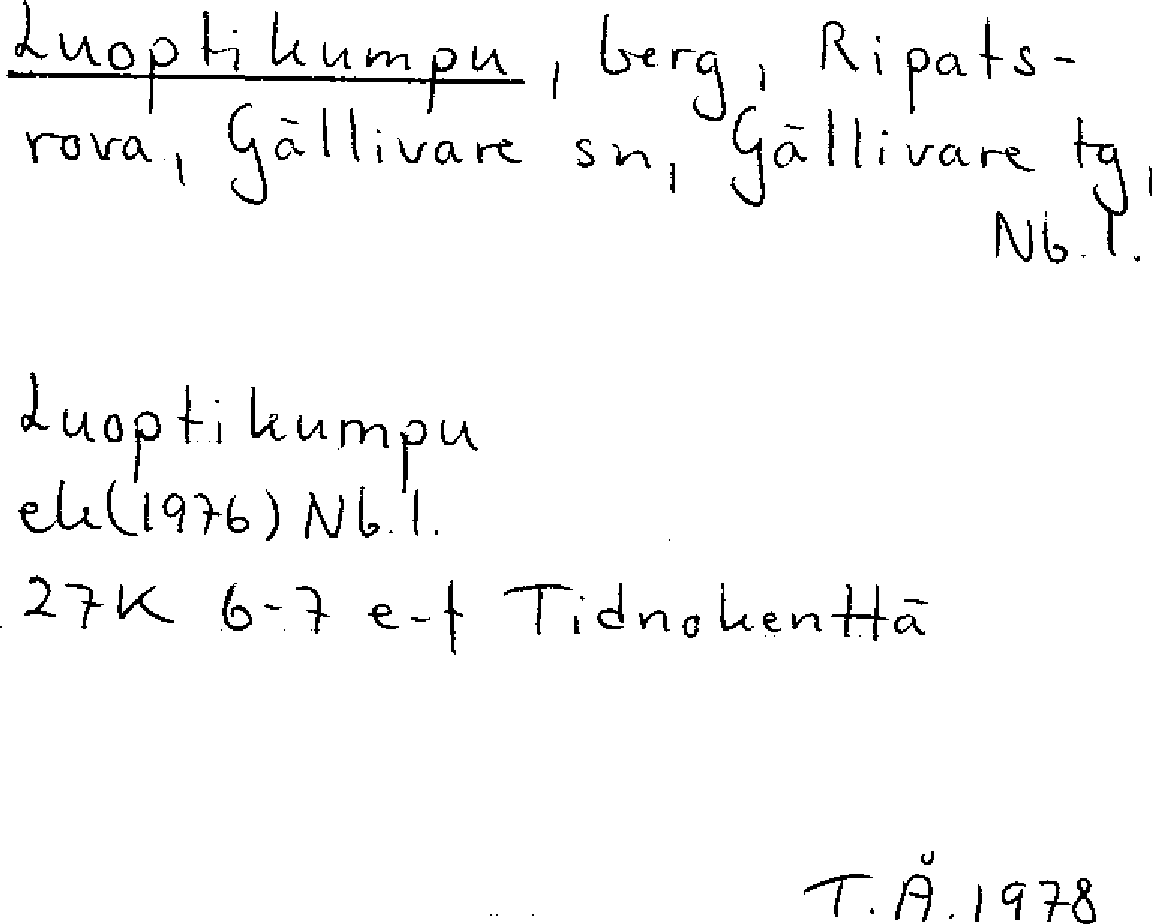 Luoptikumpu, berg, Ripats-
rova, Gällivare sn, Gällivare tg,
Nb. l.
Luoptikumpu
ek(1976) Nb. l.
27K 6-7 e-f Tidnokenttä
T.Å. 1978